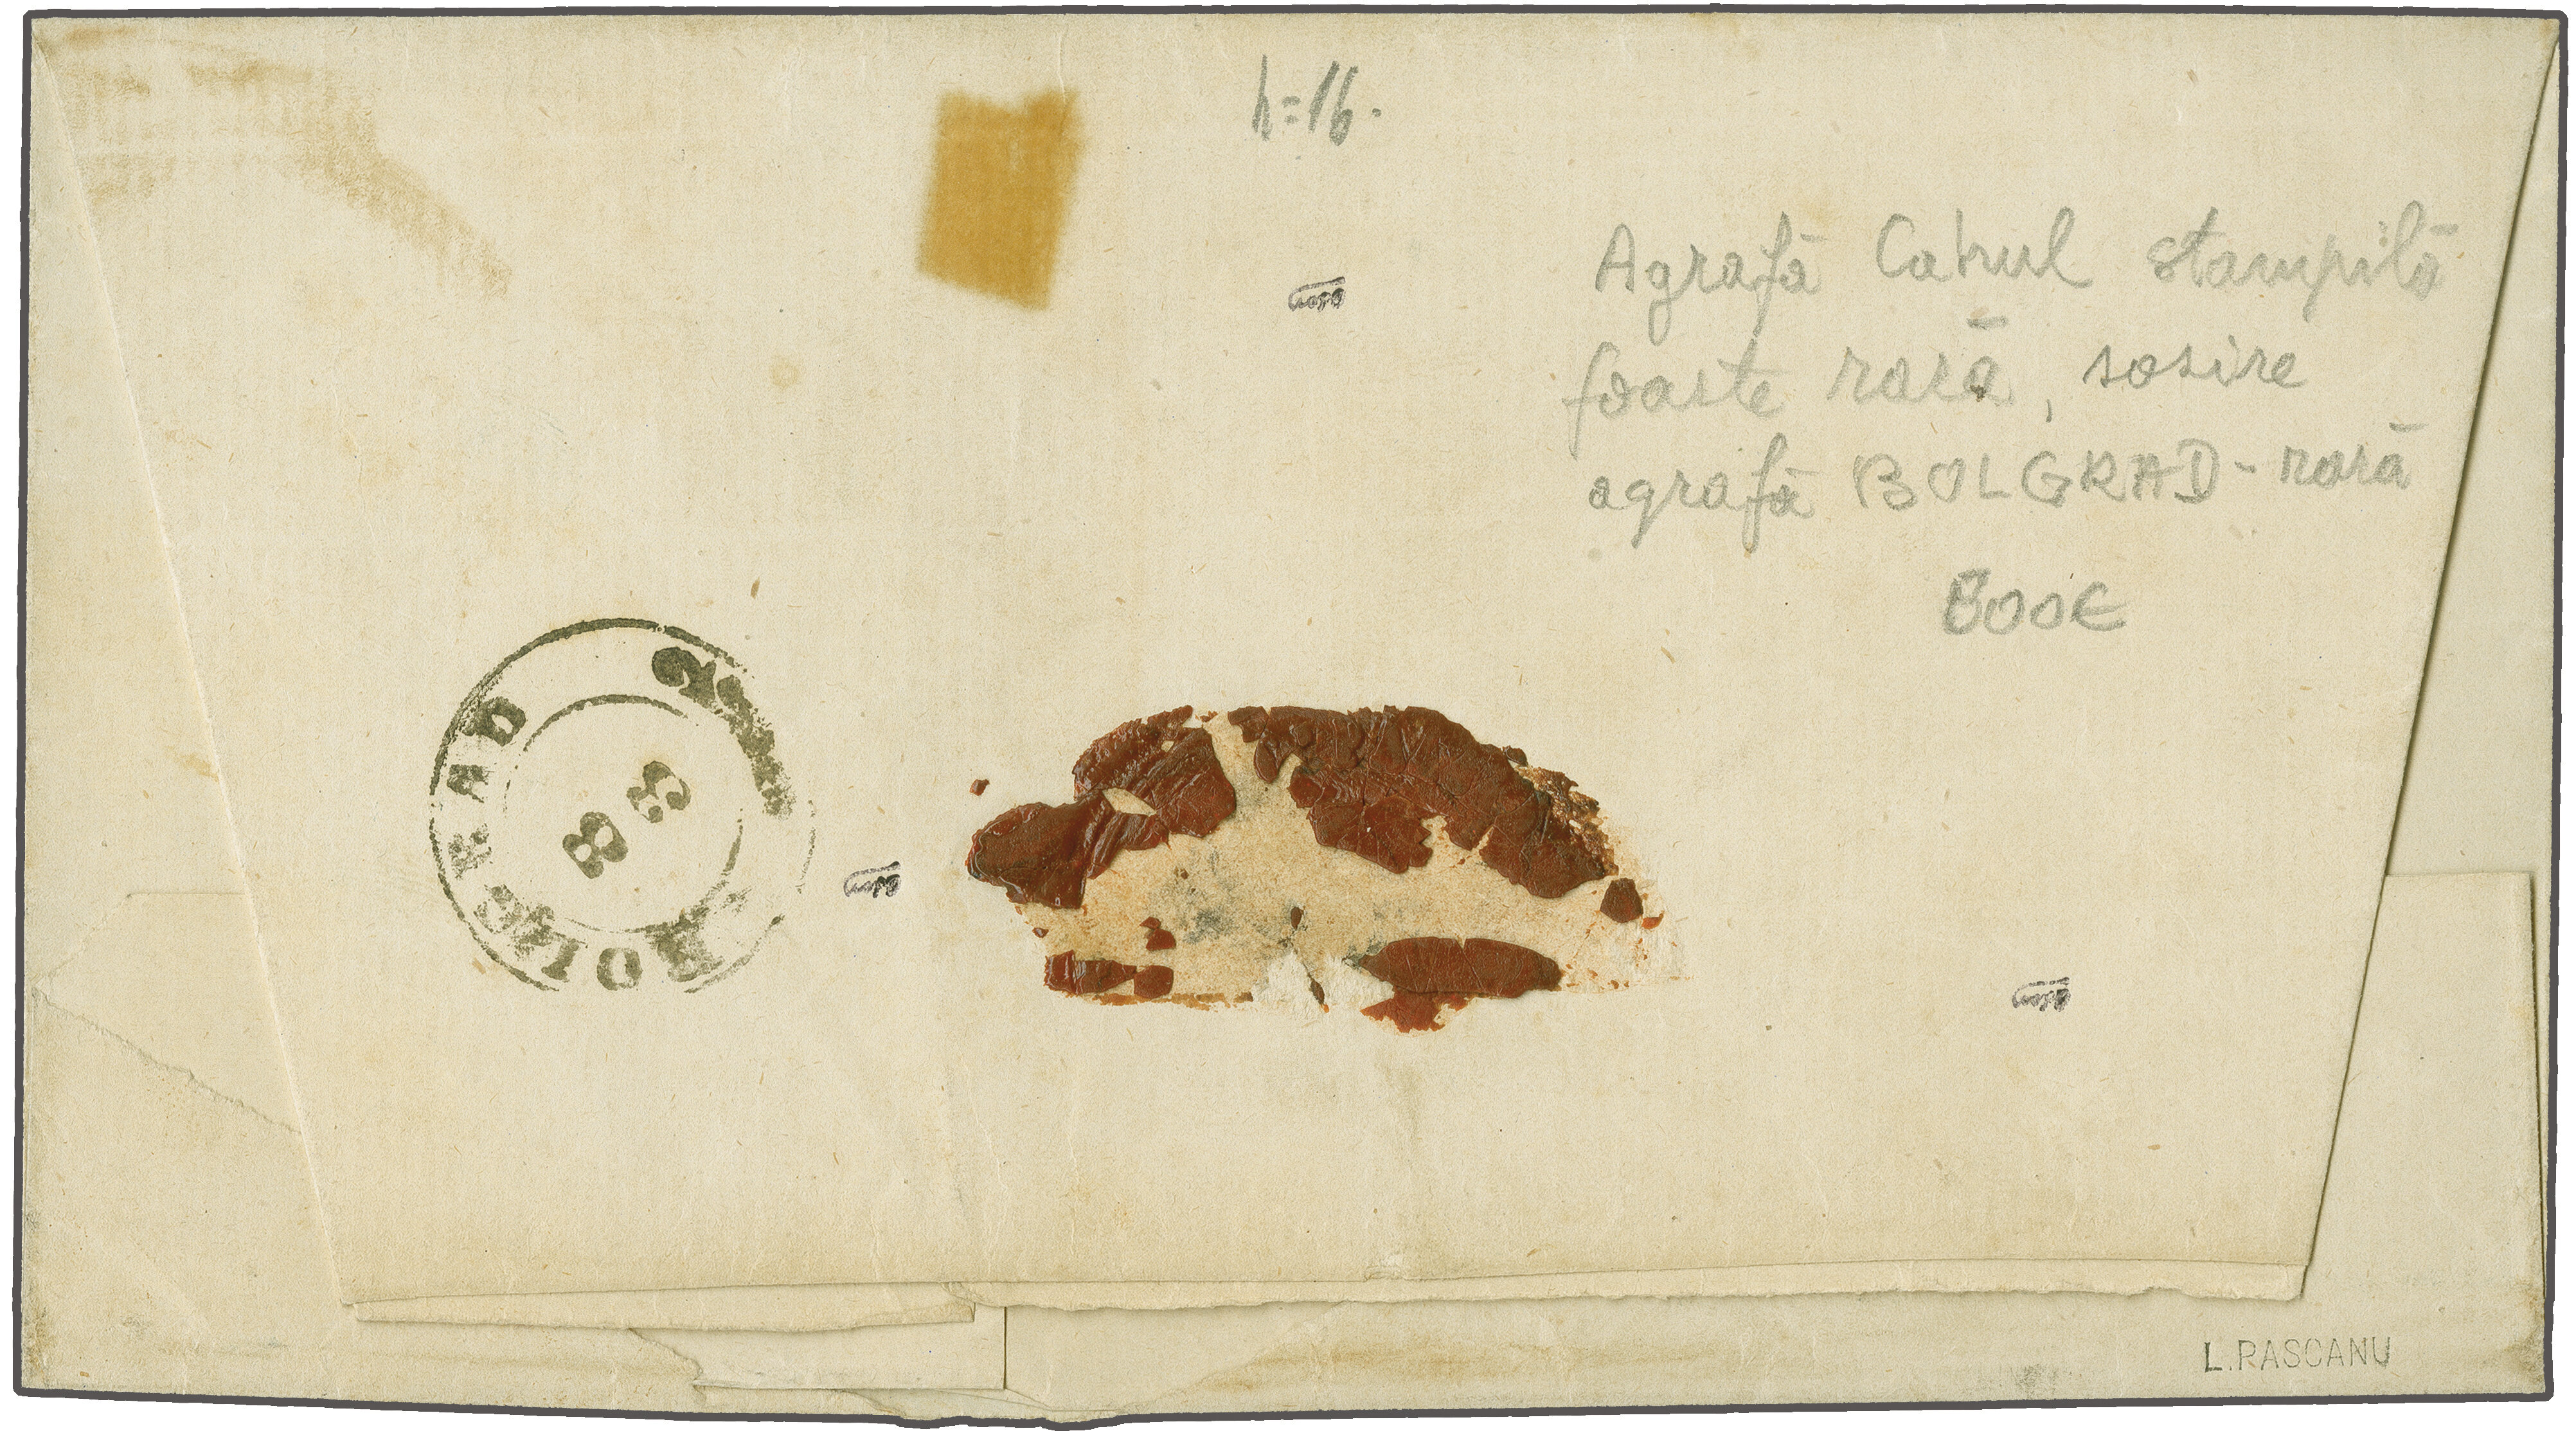 h=16.
Agrafă Cahul stampilă
foaste rară, sosire
agrafă BOLGRAD - rară
800€
BOLGRAD 2
8 5
L.RASCANU